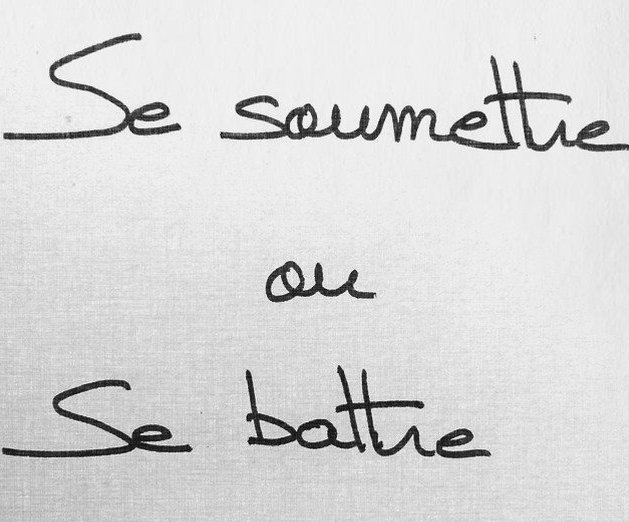 Se soumettre
ou
Se battre